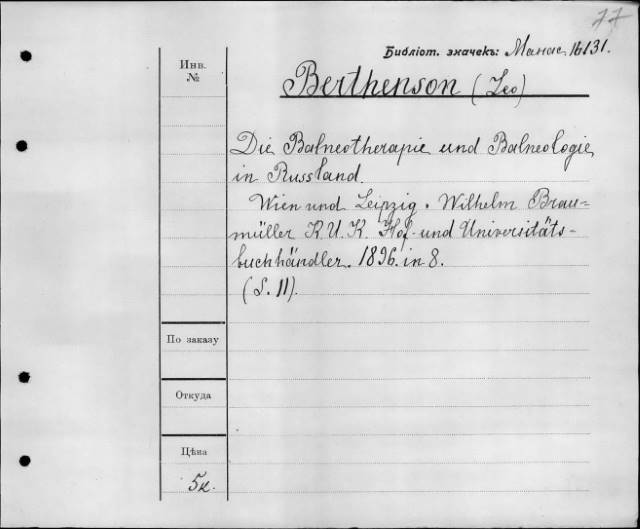 77
Библіот. значекъ: Манас. 16131.
Инв.
№
Berthenson (Leo)
Die Balneotherapie und Balneologie
in Russland.
Wien und Leipzig. Wilhelm Brau-
müller K. U. K. Hof- und Universitäts-
buchhändler. 1896. in 8.
(S. 11).
По заказу
Откуда
Цѣна
5к.